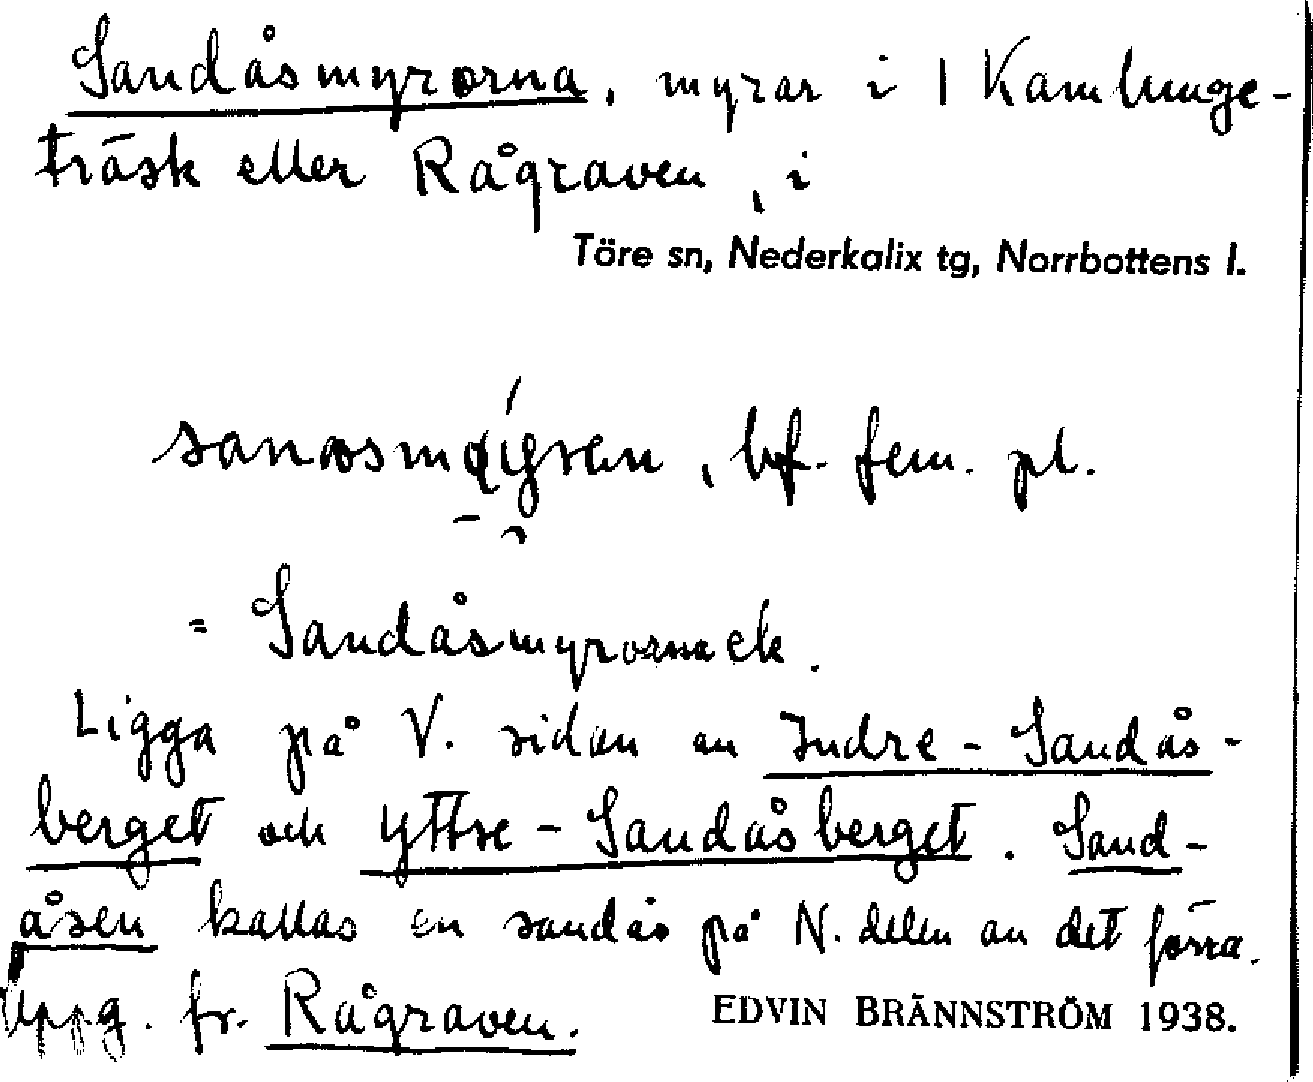 Sandåsmyrorna, myrar i 1 Kamlunge-
träsk eller Rågraven, i
Töre sn, Nederkalix tg, Norrbottens l.
, bf. fem. pl.
= Sandåsmyrorna ek.
Ligga på V. sidan av Indre-Sandås-
berget och Yttre-Sandåsberget. Sand-
åsen kallas en sandås på N. delen av det förra.
Uppg. fr. Rågraven. EDVIN BRÄNNSTRÖM 1938.